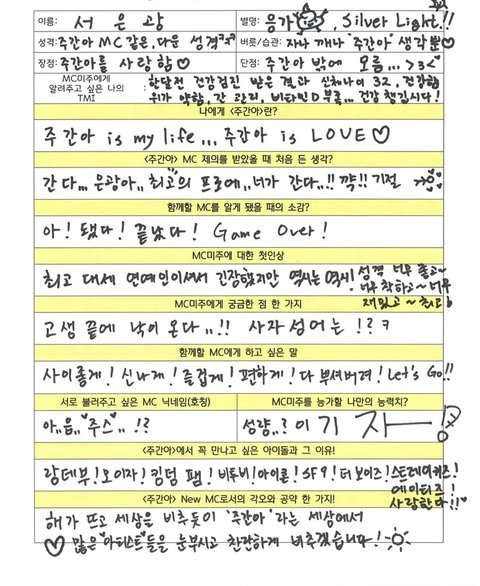 이름: 서은광
별명: 응가, Silver Light!!
성격: 주간아 MC 같은, 다운 성격ㅋㅋ
버릇/습관: 자나 깨나 '주간아' 생각뿐♡
장점: 주간아를 사랑함♡
단점: 주간아 밖에 모름...>3<
MC미주에게 알려주고 싶은 나의 TMI
한달전 건강검진 받은 결과 신체나이 32, 건강함
위가 약함, 간 관리, 비타민D부족... 건강 챙깁시다!
나에게 <주간아>란?
주간아 is my life... 주간아 is LOVE♡
<주간아> MC 제의를 받았을 때 처음 든 생각?
간다... 은광아.. 최고의 프로에.. 너가 간다..!! 꺅!! 기절
함께할 MC를 알게 됐을 때의 소감?
아! 됐다! 끝났다! Game Over!
MC미주에 대한 첫인상
최고 대세 연예인이셔서 긴장했지만 역시는 역시! 성격 너무 좋고~
너무 착하고~ 너무
재밌고~ 최고!
MC미주에게 궁금한 점 한 가지
고생 끝에 낙이 온다..!! 사자성어는!?ㅋ
함께할 MC에게 하고 싶은 말
사이좋게! 신나게! 즐겁게! 편하게! 다 부셔버려! Let's Go!!
서로 불러주고 싶은 MC 닉네임(호칭)
MC미주를 능가할 나만의 능력치?
아..음.."주스"..!?
성량..? 이기자ー!
<주간아>에서 꼭 만나고 싶은 아이돌과 그 이유!
랑데부! 오이자! 킹덤 팸! 비투비! 아이콘! SF9! 더보이즈! 스트레이키즈!
에이티즈!
사랑한다!!♥
<주간아> New MC로서의 각오와 공약 한 가지!
해가 뜨고 세상을 비추듯이 '주간아'라는 세상에서
♡ 많은 "아티스트"들을 눈부시고 찬란하게 비추겠습니다!